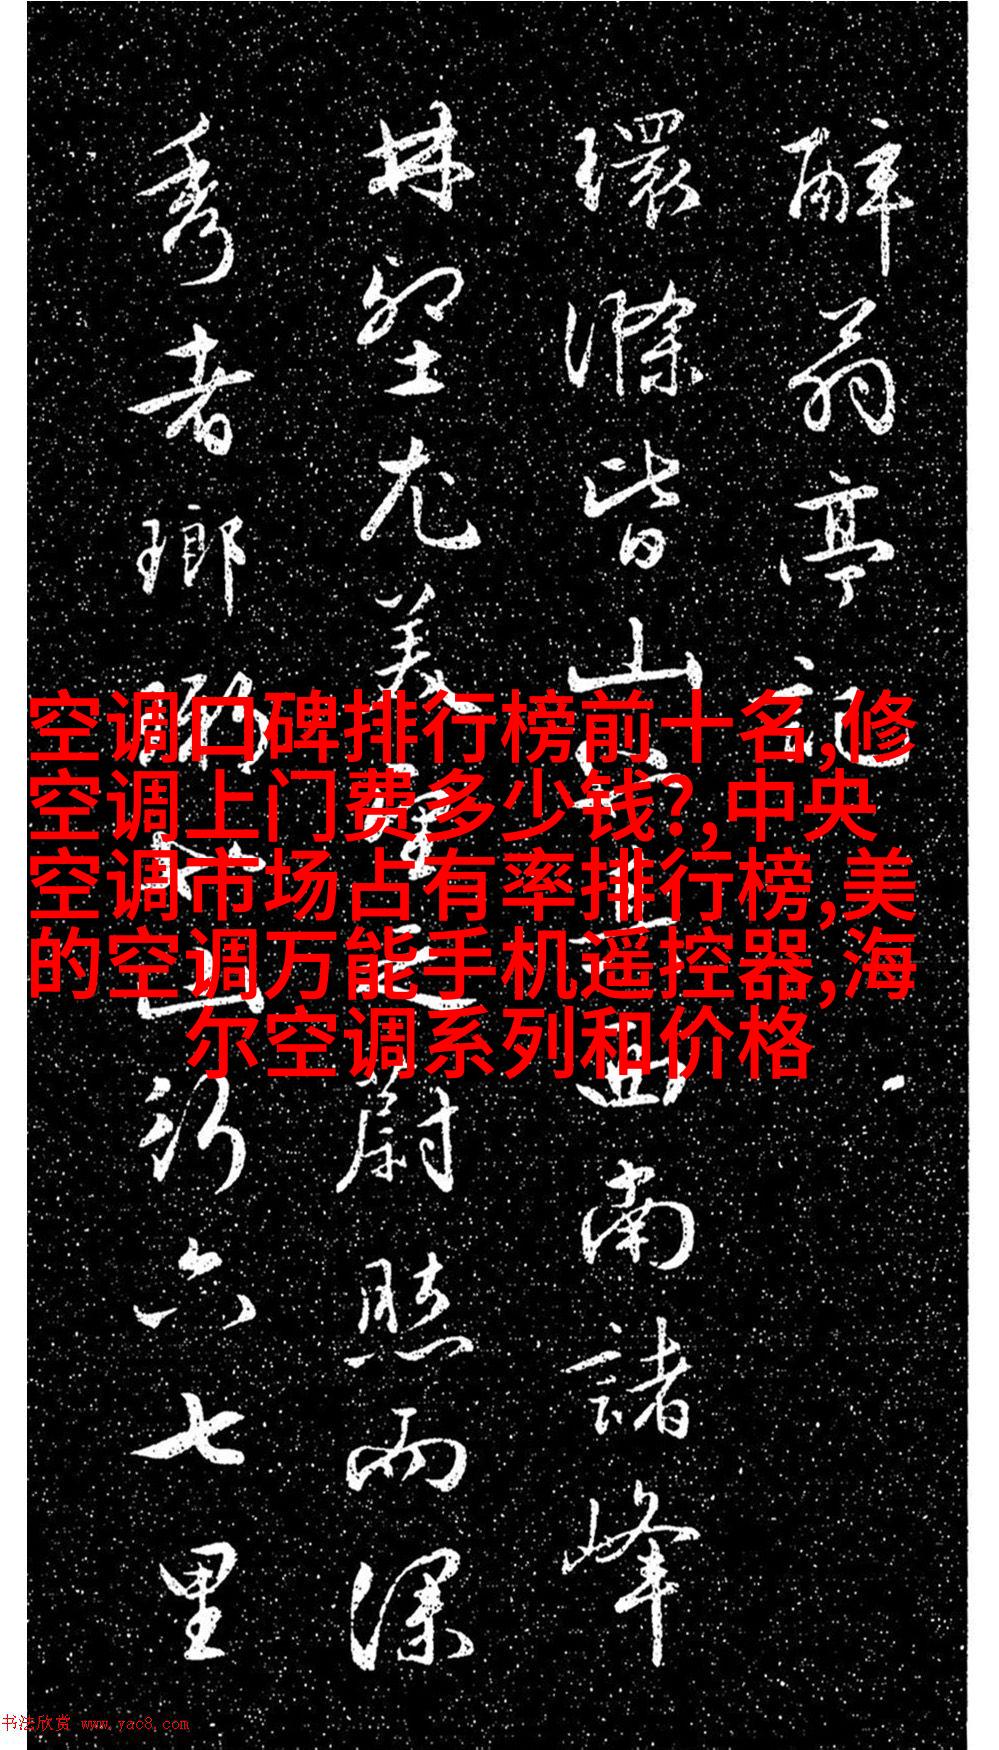 醉翁亭記
環滁皆山也其西南諸峰
林壑尤美望之蔚然而深
秀者瑯琊也山行六七里
空调口碑排行榜前十名,修
空调上门费多少钱?,中央
空调市场占有率排行榜,美
的空调万能手机遥控器,海
尔空调系列和价格
书法欣赏 www.yac8.com